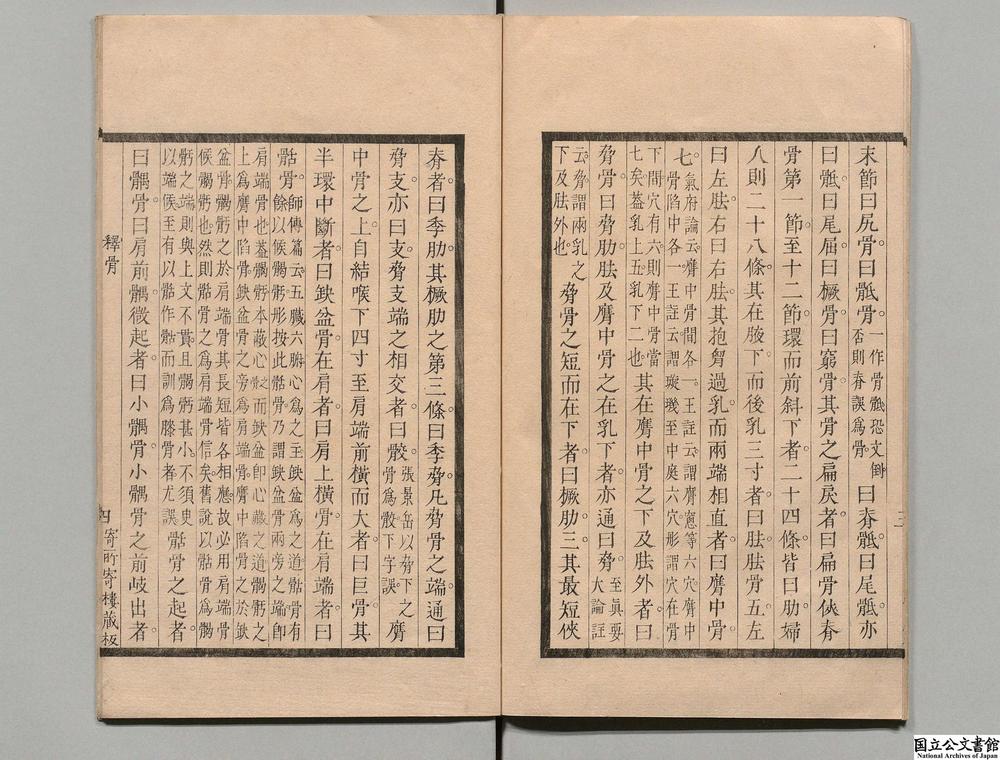 末節曰尻骨曰骶骨一作骨骶恐文倒
否則脊誤爲骨曰脊骶曰尾骶亦
曰骶曰尾屈曰橛骨曰窮骨其骨之扁戾者曰扁骨俠脊
骨第一節至十二節環而前斜下者二十四條皆曰肋婦
人則二十八條其在腋下而後乳三寸者曰胠胠骨五左
曰左胠右曰右胠其抱胷過乳而兩端相直者曰膺中骨
七氣府論云膺中骨間各一王註云謂膺窻等六穴膺中
骨陷中各一王註云謂璇璣至中庭六穴形謂穴在骨
下間穴有六則膺中骨當
七矣蓋乳上五乳下二也其在膺中骨之下及胠外者曰
脅骨曰脅肋胠及膺中骨之在乳下者亦通曰脅至眞要
大論註
云脅謂兩乳之
下及胠外也脅骨之短而在下者曰橛肋三其最短俠
脊者曰季肋其橛肋之第三條曰季脅凡脅骨之端通曰
脅支亦曰支脅支端之相交者曰骹張景岳以脅下之
骨爲骹下字誤膺
中骨之上自結喉下四寸至肩端前橫而大者曰巨骨其
半環中斷者曰鈌盆骨在肩者曰肩上橫骨在肩端者曰
骷骨師傳篇云五臟六腑心爲之主鈌盆爲之道骷骨有
餘以候髑骬形按此骷骨乃謂鈌盆骨兩旁之端即
肩端骨也蓋髑骬本蔽心骨之而鈌盆卽心藏之道髑骬之
上爲膺中陷骨鈌盆骨之旁爲肩端骨膺中陷骨之於鈌
盆骨髑骬之於肩端骨其長短皆各相應故必用肩端骨
候髑骬也然則骷骨之爲肩端骨信矣舊說以骷骨爲髑
骬之端則與上文不貫且髑骬甚小不須更
以端候至有以骷作骺而訓爲膝骨者尤誤骷骨之起者
曰髃骨曰肩前髃微起者曰小髃骨小髃骨之前岐出者
釋骨
四
寄所寄樓藏板
三
国立公文書館
National Archives of Japan